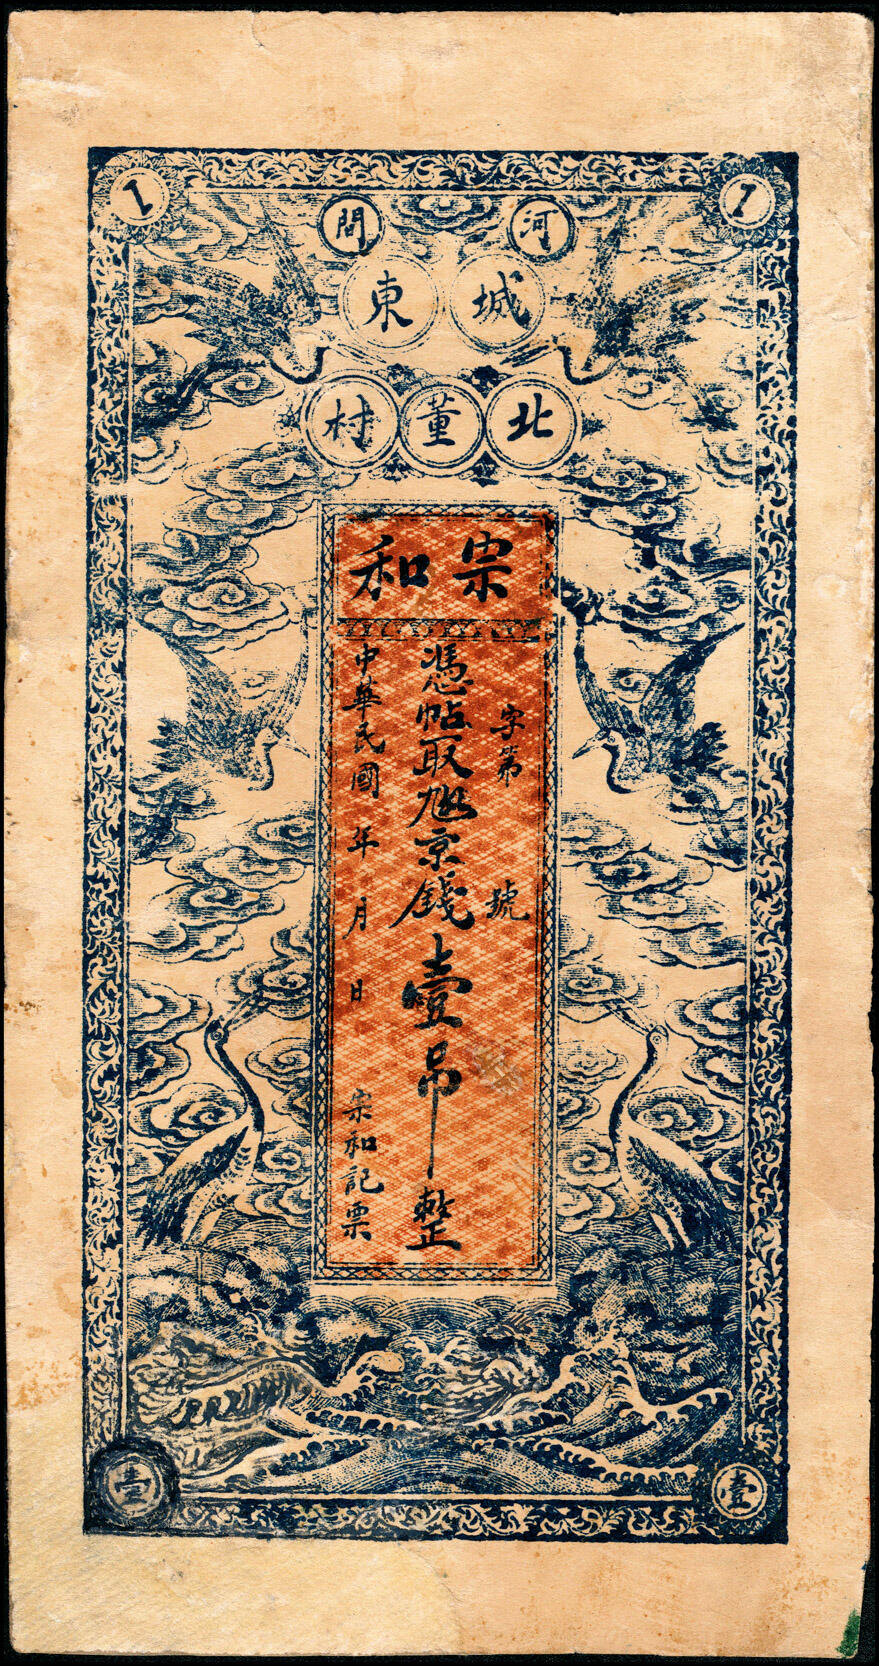 1
1
河間
城東
北董村
宗和
字第 號
憑帖取 京錢壹吊整
中華民國 年 月 日 宗和記票
壹
壹